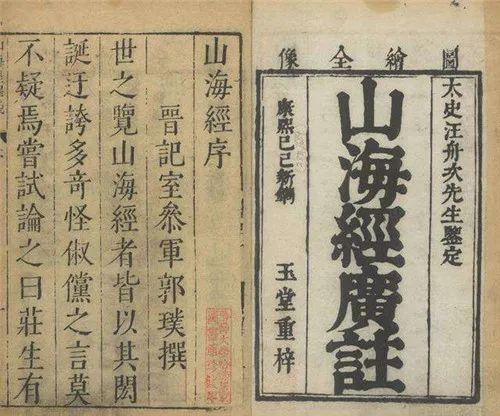 圖繪全像
太史汪舟次先生鑒定
山海經廣註
康熙己己新鐫
玉堂重梓
山海經序
晉記室參軍郭璞撰
世之覽山海經者皆以其閎
誕迂誇多奇怪俶儻之言莫
不疑焉嘗試論之曰莊生有